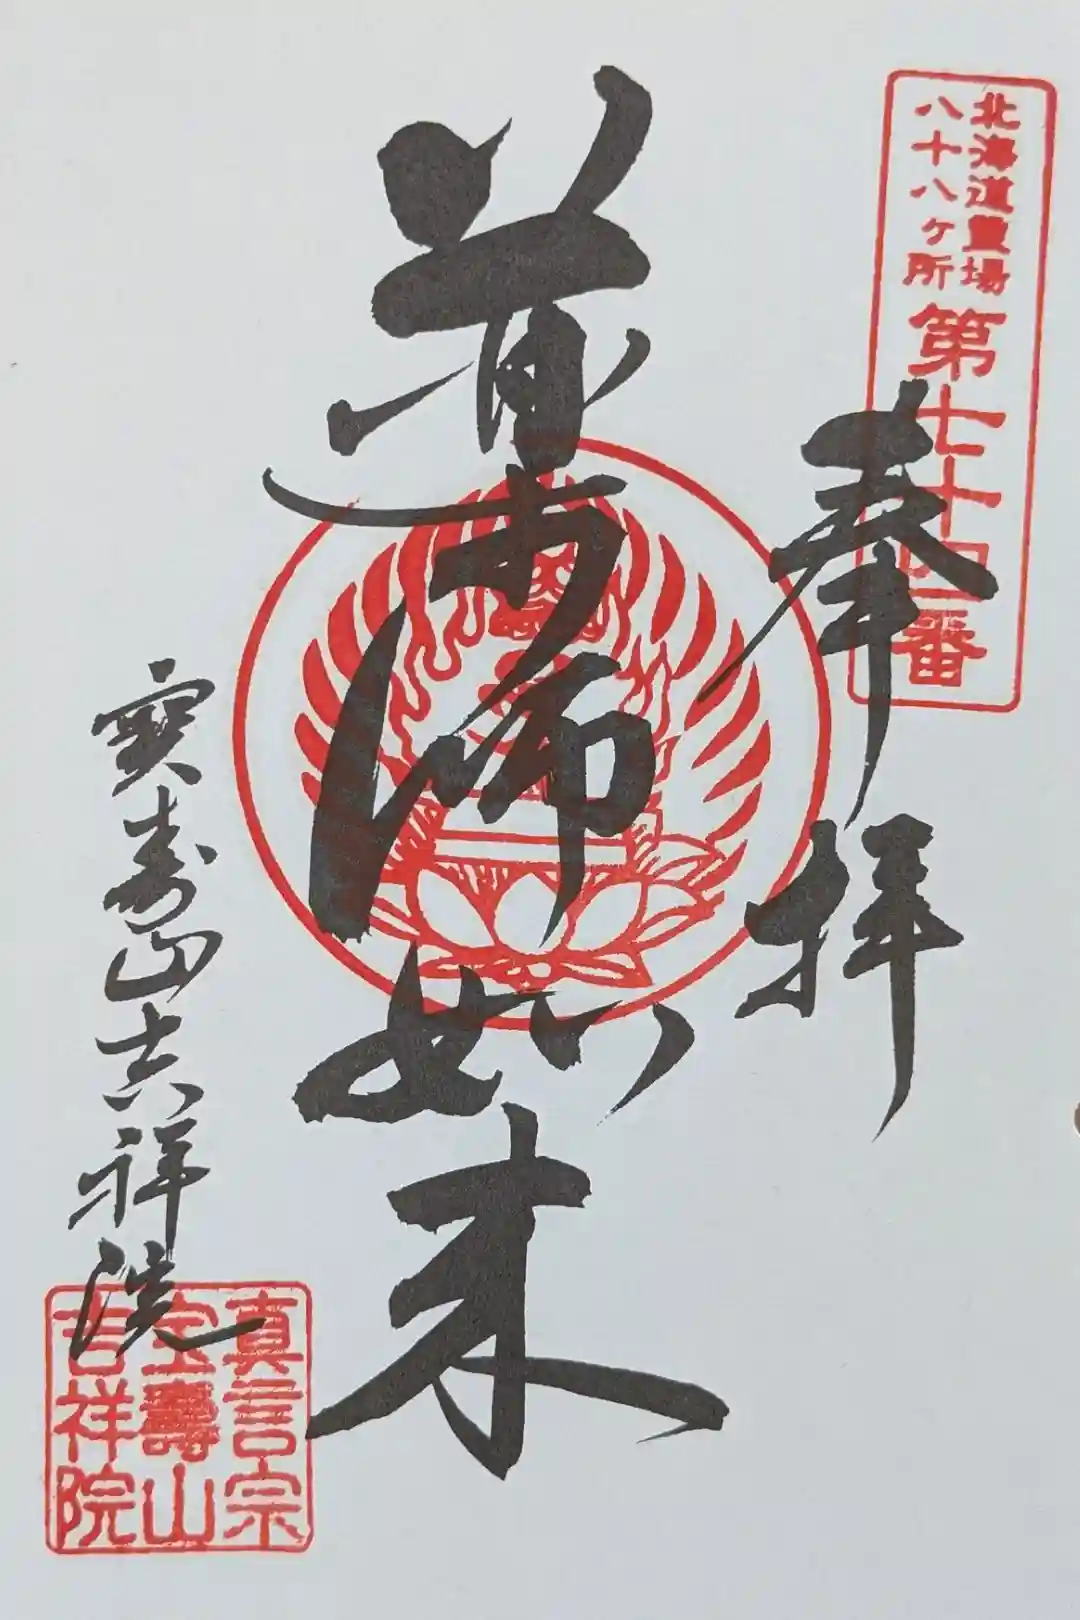 北海道霊場
八十八ヶ所
第七十四番
奉拝
薬師如来
寳寿山吉祥院
真言宗
宝壽山
吉祥院